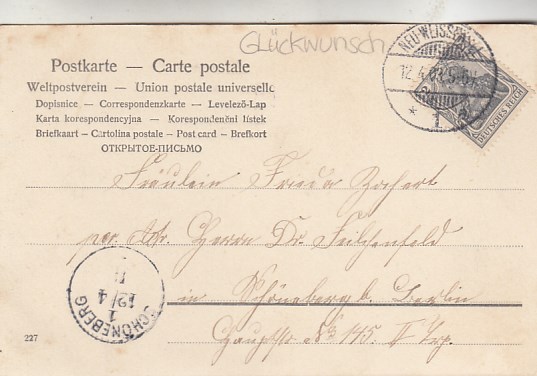 Glückwunsch
NEU-WEISSENSEE
12.4.03.5-6N.
* 1 a
DEUTSCHES REICH
Postkarte — Carte postale
Weltpostverein — Union postale universelle
Dopisnice — Correspondenzkarte — Levelező-Lap
Karta korespondencyjna — Korespondenční lístek
Briefkaart — Cartolina postale — Post card — Brefkort
ОТКРЫТОЕ-ПИСЬМО
Fräulein Frieda
per Adr. Herrn Dr. Feilchenfeld
in Schöneberg b. Berlin
Hauptstr. No 145. II Trp.
SCHÖNEBERG
1
12/4
227